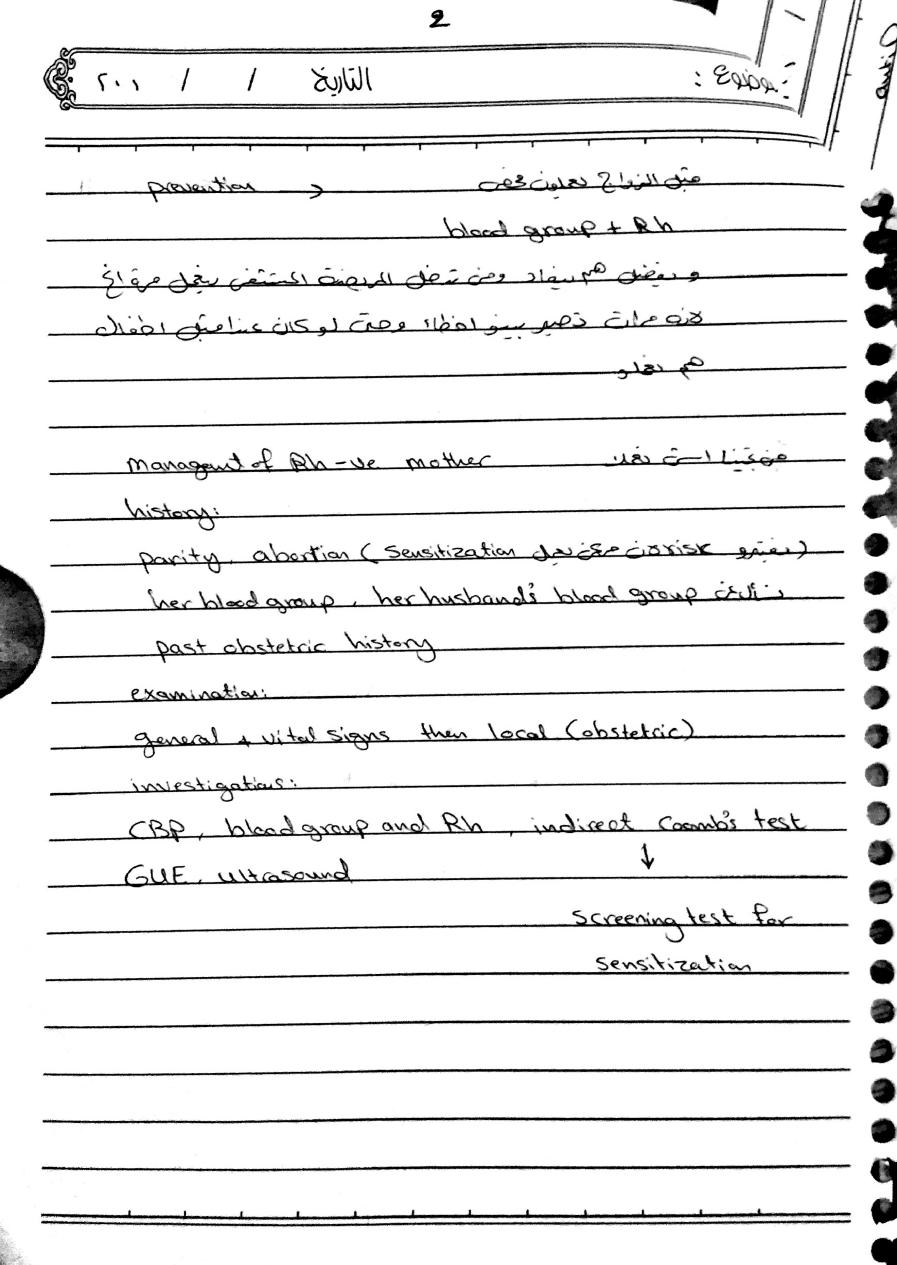 2
موضوع :
التاريخ / / ٢٠١
prevention → قبل الزواج يعملون فحص
blood group + Rh
و يفضل هم ينعاد ومن تدخل المريضة المستشفى ينعمل مرة اخ
لانه مرات تصير بيو اخطاء وحتى لو كان عدها قبل اطفال
هم نعاد
managent of Rh -ve mother
history:
parity, abortion ( sensitization يعتبرو risk لان ممكن يعمل )
her blood group, her husband's blood group
past obstetric history
examination:
general + vital signs then local (obstetric)
investigations:
CBP, blood group and Rh, indirect Coomb's test
GUE, ultrasound ↓
screening test for
sensitization